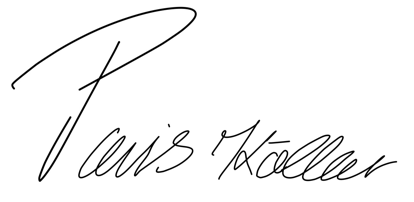 Paris Köllar